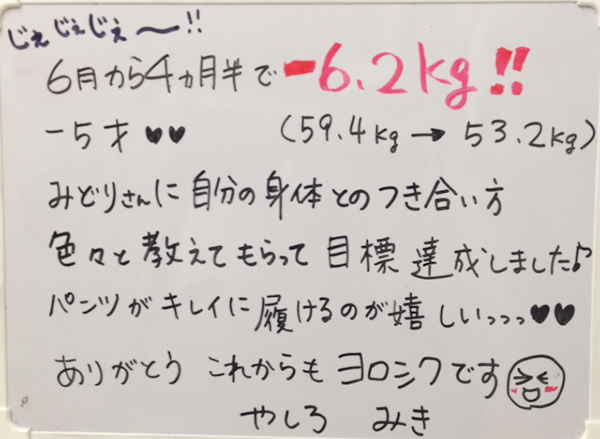 じぇじぇじぇ〜!!
6月から4ヵ月半で-6.2kg!!
-5才♥♥ (59.4kg→53.2kg)
みどりさんに自分の身体とのつき合い方
色々と教えてもらって目標達成しました♪
パンツがキレイに履けるのが嬉しいっっっ♥♥
ありがとう これからもヨロシクです
やしろ みき